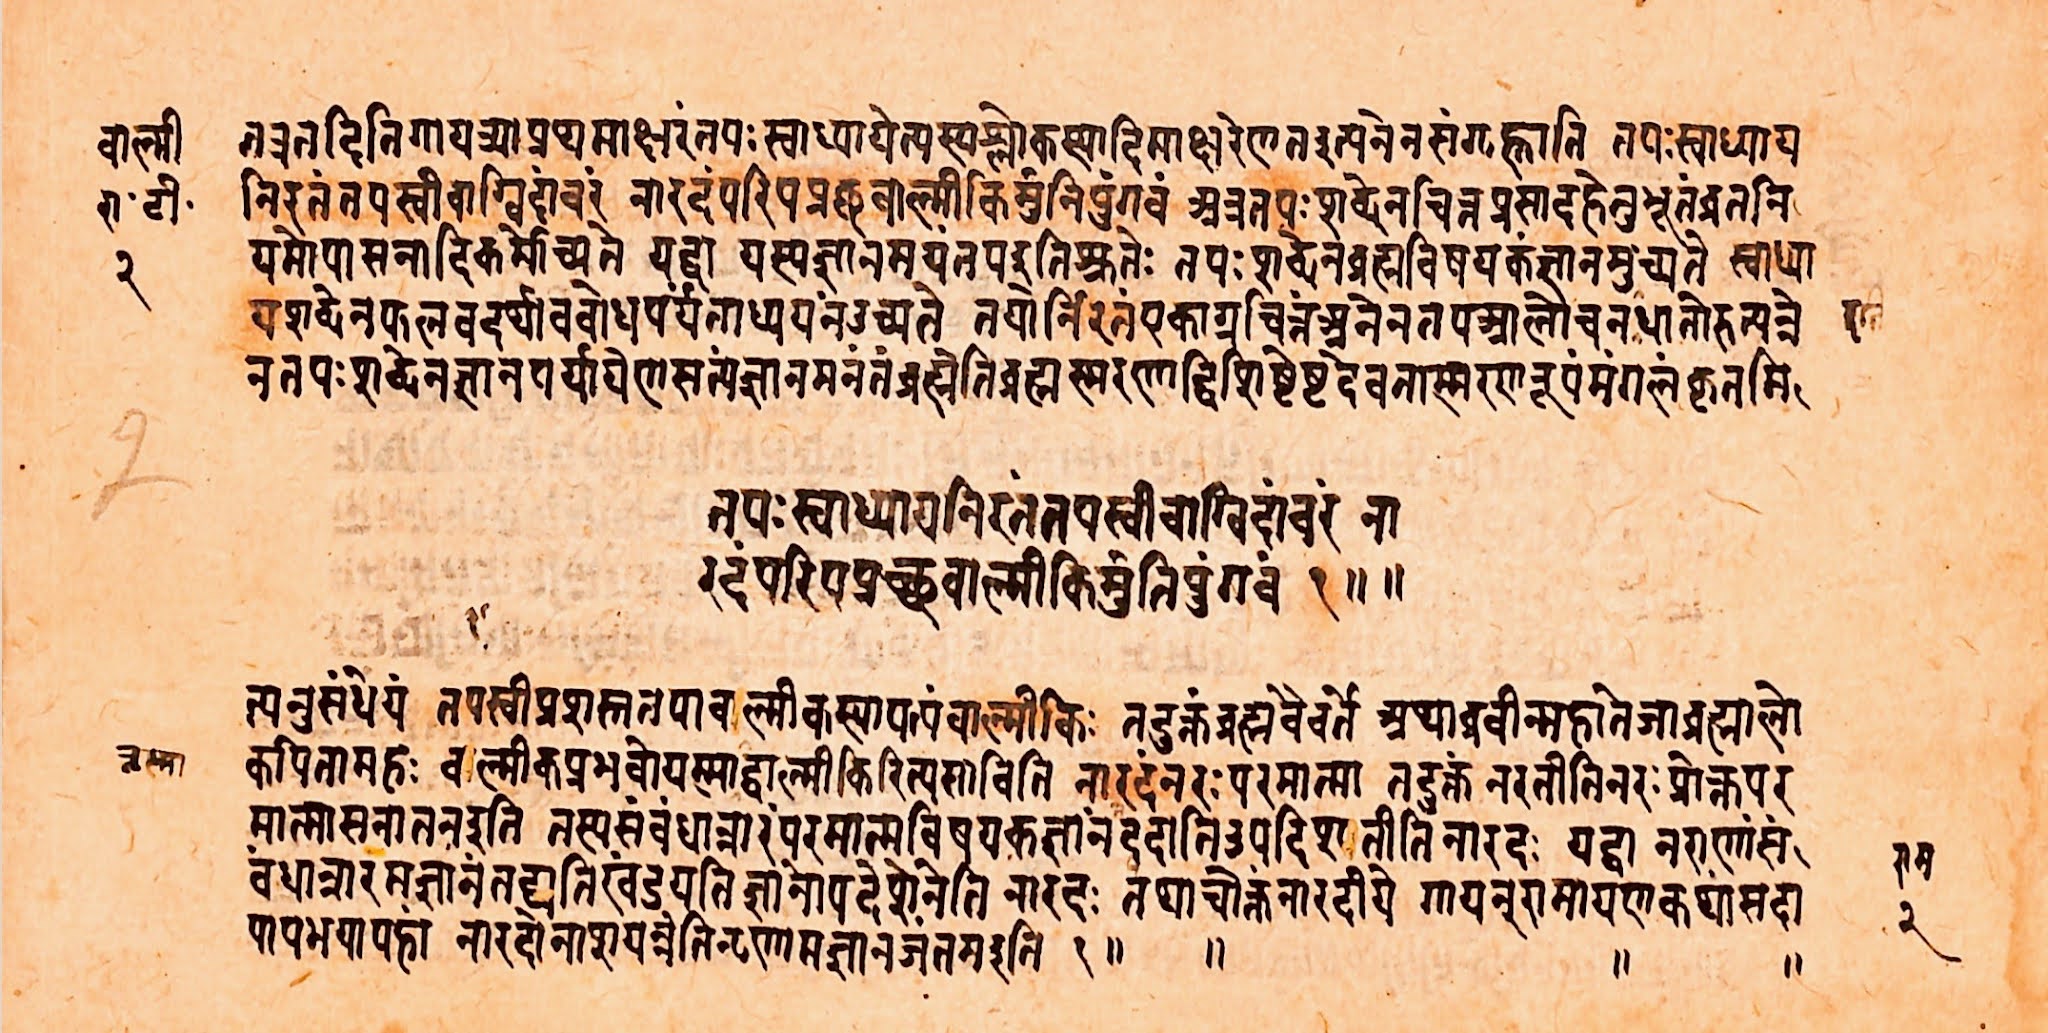 वाल्मी
रा॰टी॰
२
तत्रतदितिगायत्र्याप्रथमाक्षरंतपःस्वाध्यायेत्यस्यश्लोकस्यादिमाक्षरेणतइत्यनेनसंगृह्णाति तपःस्वाध्याय
निरतंतपस्वीवाग्विदांवरं नारदंपरिपप्रछवाल्मीकिर्मुनिपुंगवं अत्रतपःशब्देनचित्तप्रसादहेतुभूतंव्रतनि
यमोपासनादिकर्मोच्यते यद्वा यस्यज्ञानमयंतपइतिश्रुतेः तपःशब्देनब्रह्मविषयकंज्ञानमुच्यते स्वाध्या
यशब्देनफलवदर्थावबोधपर्यंताध्ययनंउच्यते तयोर्निरतंएकाग्रचित्तंअनेनतपआलोचनधातोरुत्पन्ने
नतपःशब्देनज्ञानपर्यायेणसत्यंज्ञानमनंतंब्रह्मेतिब्रह्मस्मरणाद्विशिष्टेष्टदेवतास्मरणरूपंमंगलंकृतमि
२
तपःस्वाध्यायनिरतंतपस्वीवाग्विदांवरं ना
रदंपरिपप्रच्छवाल्मीकिर्मुनिपुंगवं १॥ ॥
त्यनुसंधेयं तपस्वीप्रशस्ततपावल्मीकस्यापत्यंवाल्मीकिः तदुक्तंब्रह्मवैवर्ते अथाब्रवीन्महातेजाब्रह्मालो
कपितामहः वल्मीकप्रभवोयस्माद्वाल्मीकिरित्यसाविति नारदंनरःपरमात्मा तदुक्तं नरतीतिनरःप्रोक्तपर
मात्मासनातनइति तस्यसंबंधान्नारंपरमात्मविषयकज्ञानंददातिउपदिशतीतिनारदः यद्वा नराणांसं
बंधान्नारमज्ञानंतद्द्यतिखंडयतिज्ञानोपदेशेनेति नारदः तथाचोक्तंनारदीये गायन्रामायणकथांसदा
पापभयापहां नारदोनाशयन्नेतिनृणामज्ञानजंतमइति १॥ ॥ ॥ ॥
राम
२